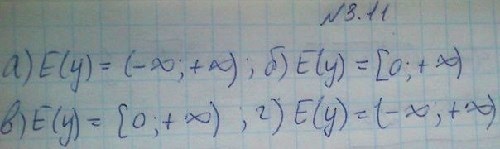 №3.11
а) E(y) = (-∞; +∞); б) E(y) = [0; +∞)
в) E(y) = [0; +∞); г) E(y) = (-∞; +∞)